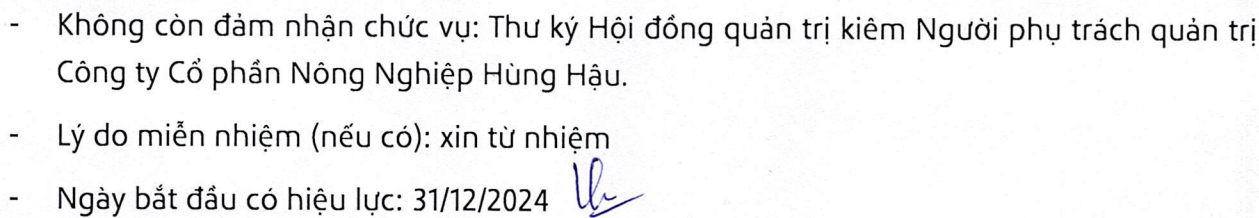 - Không còn đảm nhận chức vụ: Thư ký Hội đồng quản trị kiêm Người phụ trách quản trị
Công ty Cổ phần Nông Nghiệp Hùng Hậu.
- Lý do miễn nhiệm (nếu có): xin từ nhiệm
- Ngày bắt đầu có hiệu lực: 31/12/2024